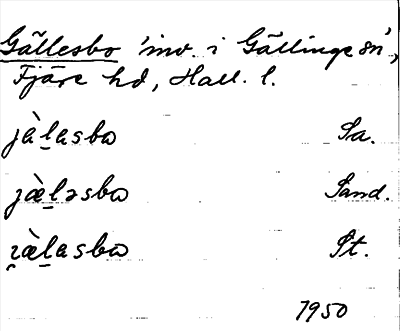 Gällesbo 'inv. i Gällinge sn',
Fjäre hd, Hall. l.
jä̀l̠asbω Sa.
jæ̀l̠əsbω Sand.
ʒæ̀l̠asbω St.
1950